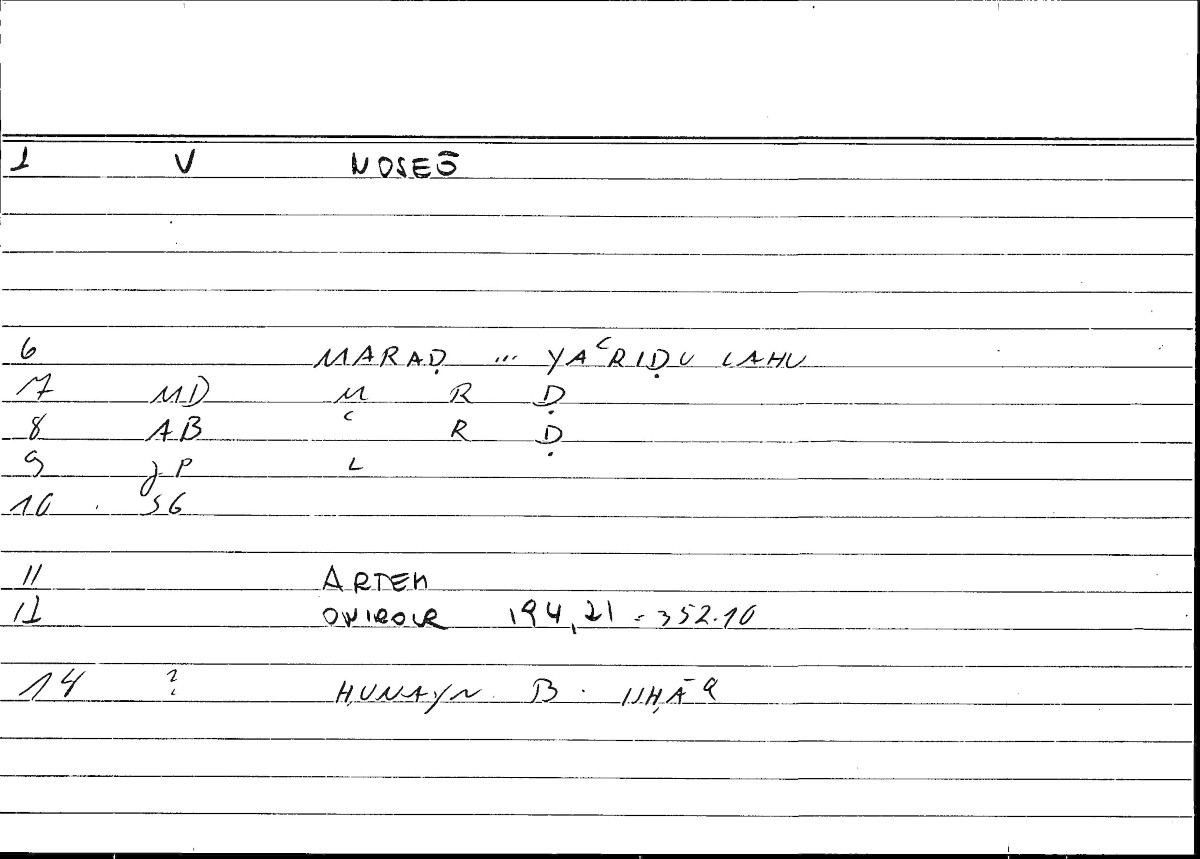 1 V NOSEŌ
6 MARAḌ ... YAʿRIḌU LAHU
7 MD M R Ḍ
8 AB ʿ R Ḍ
9 JP L
10 SG
11 ARTEM
12 ONIROCR 194,21 = 352.10
14 ? ḤUNAYN B. ISḤĀQ